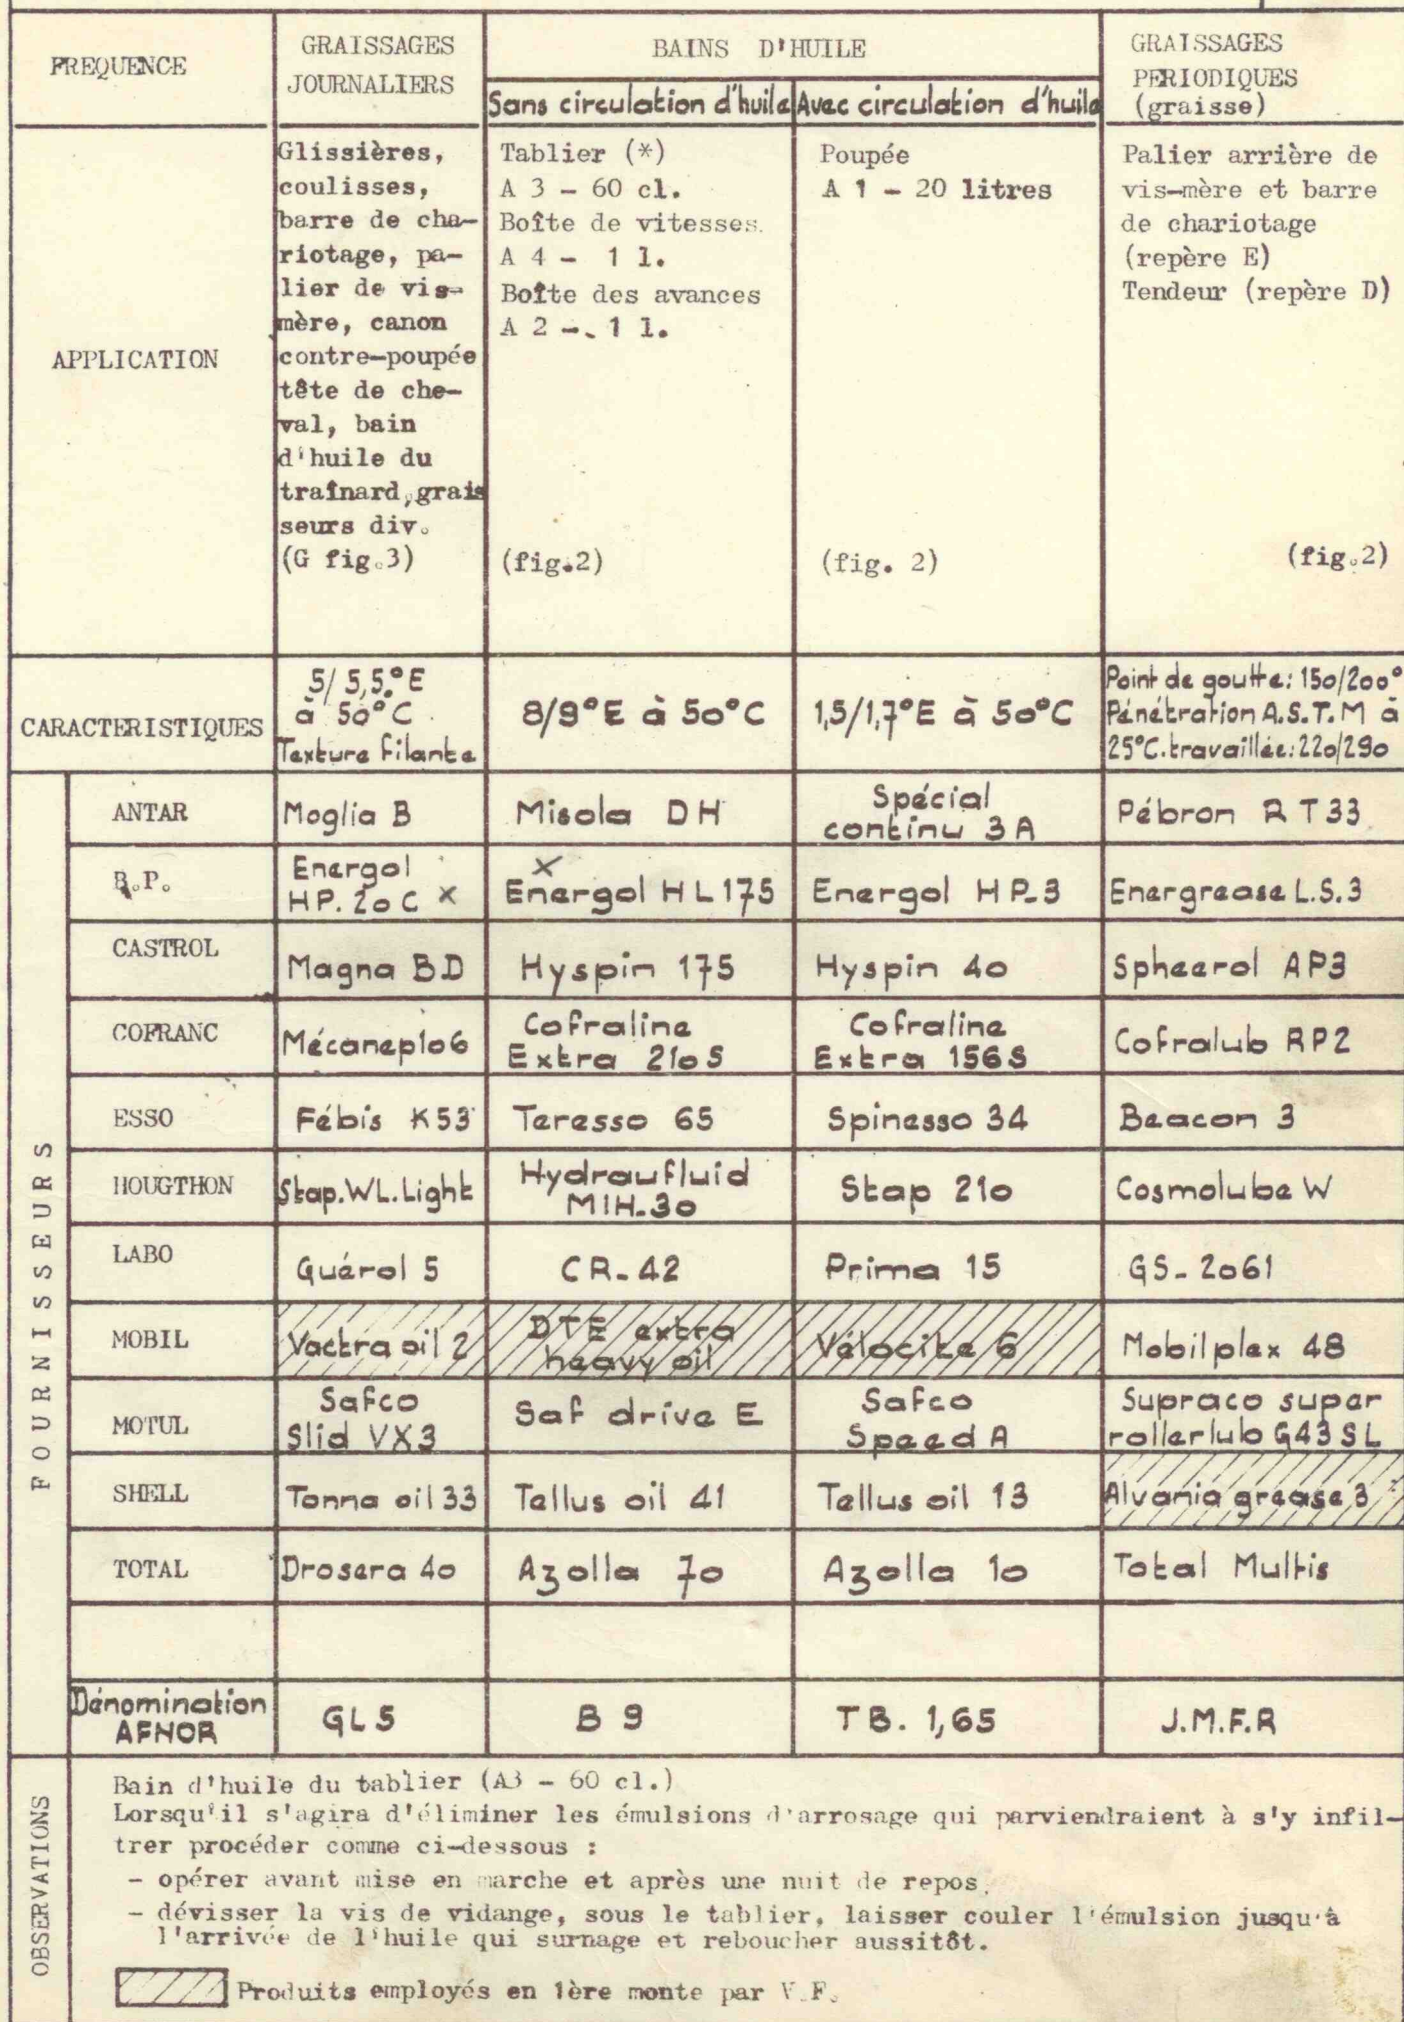 FREQUENCE
GRAISSAGES
JOURNALIERS
BAINS D'HUILE
Sans circulation d'huile
Avec circulation d'huile
GRAISSAGES
PERIODIQUES
(graisse)
APPLICATION
Glissières,
coulisses,
barre de cha-
riotage, pa-
lier de vis-
mère, canon
contre-poupée
tête de che-
val, bain
d'huile du
traînard,grais
seurs div.
(G fig.3)
Tablier (*)
A 3 - 60 cl.
Boîte de vitesses.
A 4 - 1 l.
Boîte des avances
A 2 -. 1 l.
(fig.2)
Poupée
A 1 - 20 litres
(fig. 2)
Palier arrière de
vis-mère et barre
de chariotage
(repère E)
Tendeur (repère D)
(fig.2)
CARACTERISTIQUES
5/5,5°E
à 50°C.
Texture filante
8/9°E à 50°C
1,5/1,7°E à 50°C
Point de goutte: 150/200°
Pénétration A.S.T.M à
25°C.travaillée:220/290
FOURNISSEURS
ANTAR
Moglia B
Misola DH
Spécial
continu 3A
Pébron RT33
B.P.
Energol
HP.20C X
X
Energol HL175
Energol HP-3
Energrease L.S.3
CASTROL
Magna BD
Hyspin 175
Hyspin 40
Spheerol AP3
COFRANC
Mécanep106
Cofraline
Extra 210S
Cofraline
Extra 156S
Cofralub RP2
ESSO
Fébis K53
Teresso 65
Spinesso 34
Beacon 3
HOUGTHON
Stap.WL.Light
Hydraufluid
MIH-30
Stap 210
Cosmolube W
LABO
Guérol 5
CR-42
Prima 15
GS-2061
MOBIL
Vactra oil 2
DTE extra
heavy oil
Vélocite 6
Mobilplex 48
MOTUL
Safco
Slid VX3
Saf drive E
Safco
Speed A
Supraco super
rollerlub G43 SL
SHELL
Tonna oil 33
Tellus oil 41
Tellus oil 13
Alvania grease 3
TOTAL
Drosera 40
Azolla 70
Azolla 10
Total Multis
Dénomination
AFNOR
GL5
B 9
TB. 1,65
J.M.F.R
OBSERVATIONS
Bain d'huile du tablier (A3 - 60 cl.)
Lorsqu'il s'agira d'éliminer les émulsions d'arrosage qui parviendraient à s'y infil-
trer procéder comme ci-dessous :
- opérer avant mise en marche et après une nuit de repos.
- dévisser la vis de vidange, sous le tablier, laisser couler l'émulsion jusqu'à
l'arrivée de l'huile qui surnage et reboucher aussitôt.
Produits employés en 1ère monte par V.F.